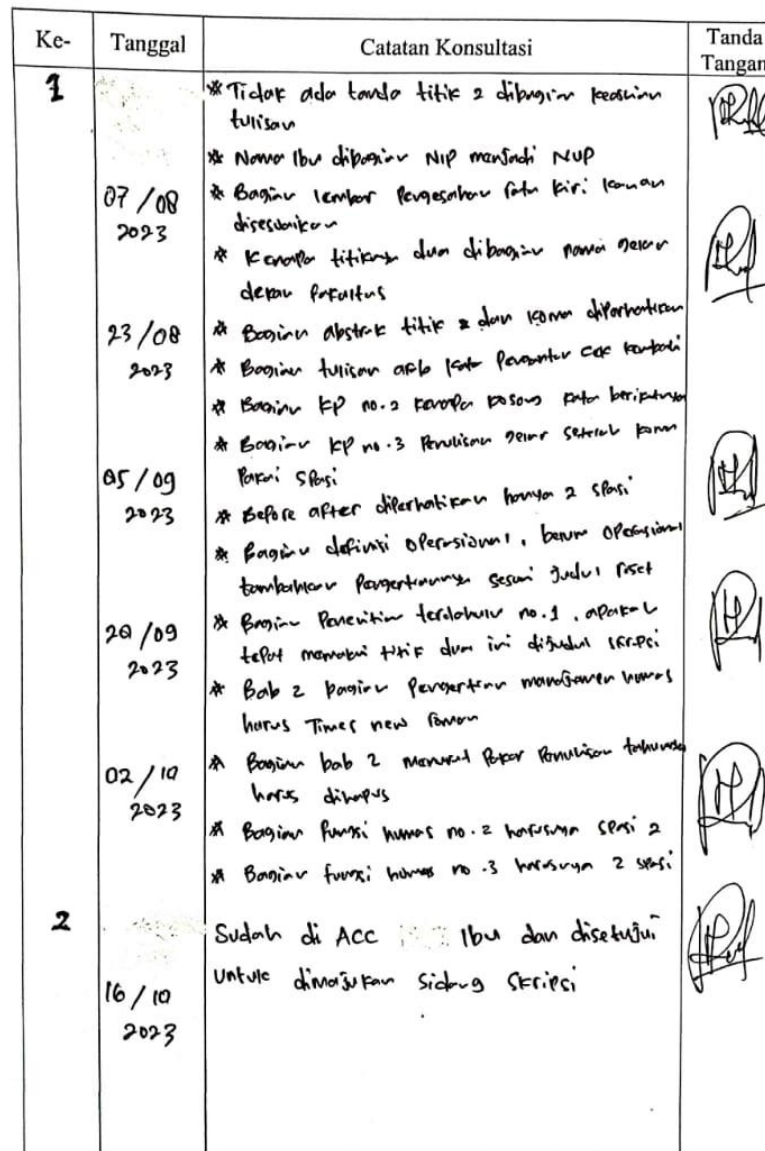 Ke- Tanggal Catatan Konsultasi Tanda Tangan
1
* Tidak ada tanda titik 2 dibagian keaslian
tulisan
* Nama Ibu dibagian NIP menjadi NUP
07/08
2023
* Bagian lembar Pengesahan rata kiri kanan
disesuaikan
* Kenapa titiknya dua dibagian nama gelar
dekan fakultas
23/08
2023
* Bagian abstrak titik 2 dan koma diperhatikan
* Bagian tulisan arab kata Pengantar cek kembali
* Bagian KP no.2 kenapa kosong kata berikutnya
* Bagian KP no.3 Penulisan gelar setelah koma
Pakai spasi
05/09
2023
* Before after diperhatikan hanya 2 spasi
* Bagian definisi operasional, belum operasional
tambahkan Pengertiannya sesuai judul riset
20/09
2023
* Bagian Penelitian terdahulu no.1, apakah
tepat memakai titik dua ini dijudul skripsi
* Bab 2 bagian Pengertian manajemen humas
harus Times new roman
02/10
2023
* Bagian bab 2 menurut Pakar Penulisan tahunnya
harus dihapus
* Bagian fungsi humas no.2 harusnya spasi 2
* Bagian fungsi humas no.3 harusnya 2 spasi
2
Sudah di ACC Ibu dan disetujui
untuk dimajukan sidang skripsi
16/10
2023